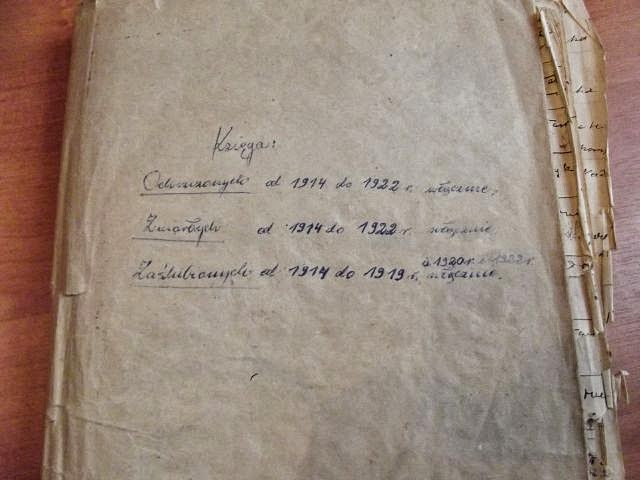 Księga:
Ochrzczonych od 1914 do 1922 r. włącznie,
Zmarłych od 1914 do 1922 r. włącznie
i 1920 r. i 1922 r.
Zaślubionych od 1914 do 1919 r, włącznie.